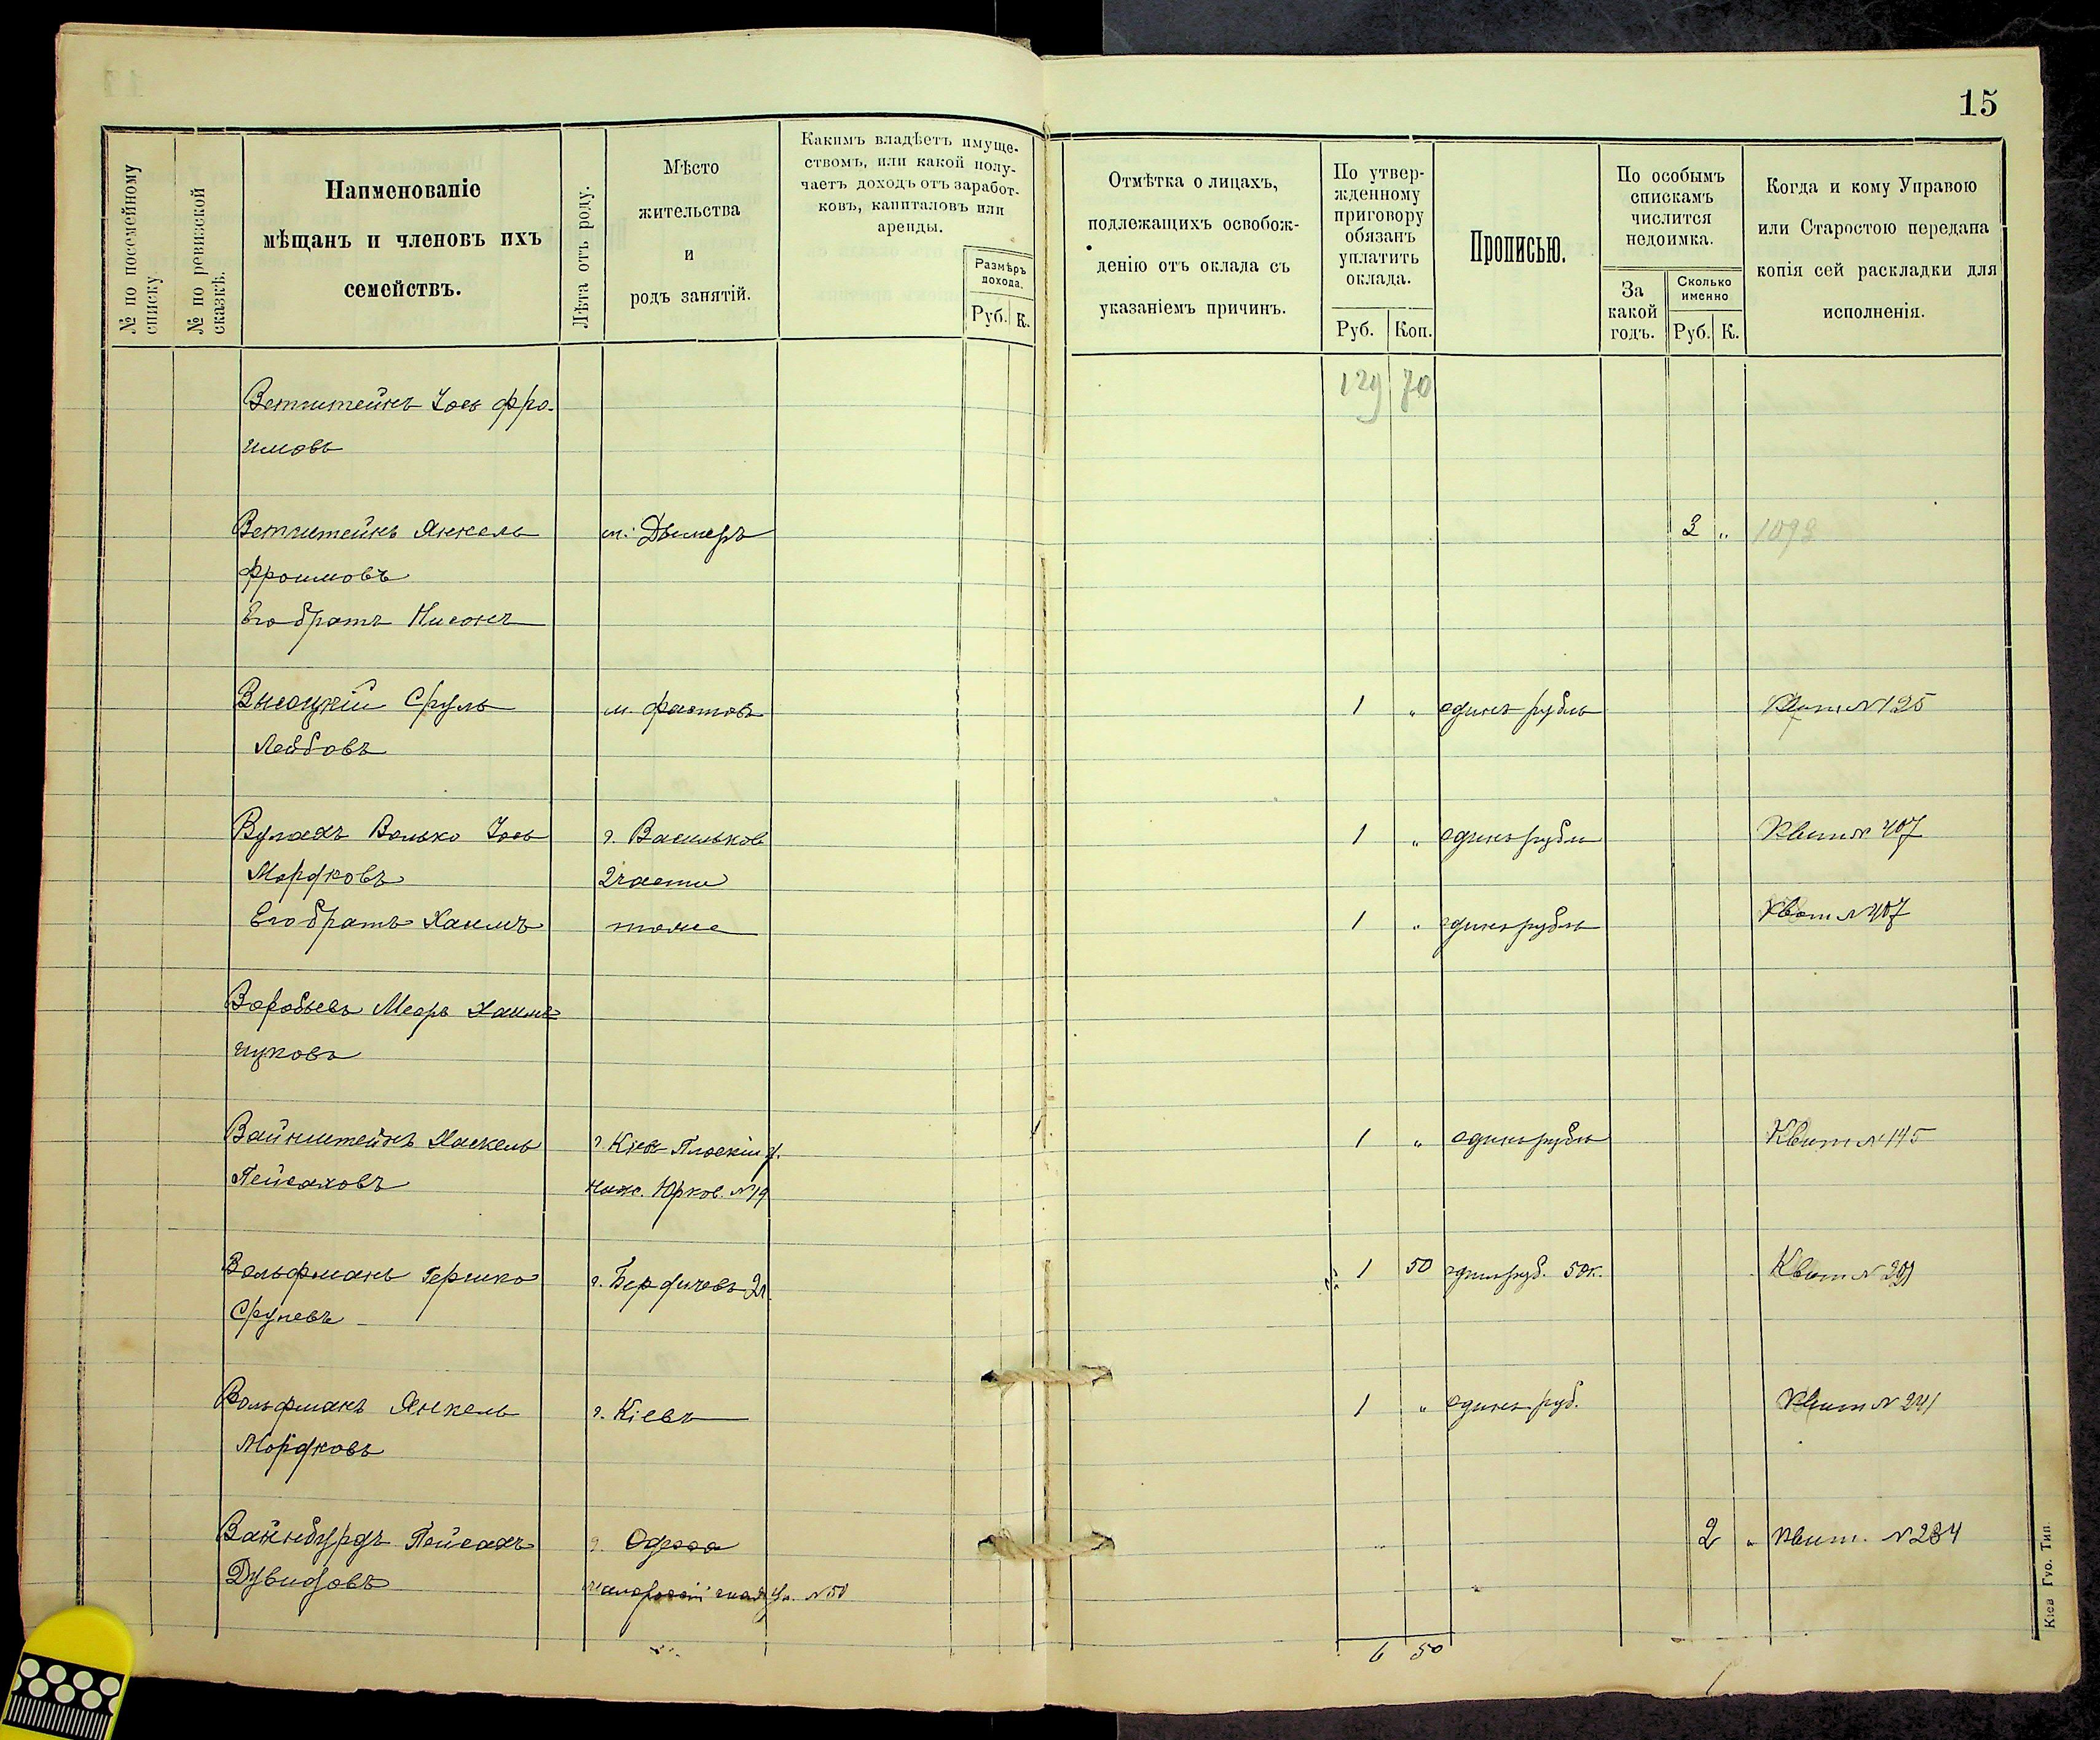 15
№ по посемейному списку.
№ по ревизской сказкѣ.
Наименованіе
мѣщанъ и членовъ ихъ
семействъ.
Лѣта отъ роду.
Мѣсто
жительства
и
родъ занятій.
Какимъ владѣетъ имуще-
ствомъ, или какой полу-
чаетъ доходъ отъ заработ-
ковъ, капиталовъ или
аренды.
Размѣръ
дохода.
Руб. К.
Отмѣтка о лицахъ,
подлежащихъ освобож-
денію отъ оклада съ
указаніемъ причинъ.
По утвер-
жденному
приговору
обязанъ
уплатить
оклада.
Руб. Коп.
Прописью.
По особымъ
спискамъ
числится
недоимка.
За
какой
годъ.
Сколько
именно
Руб. К.
Когда и кому Управою
или Старостою передана
копія сей раскладки для
исполненія.
Ветштейнъ Іось Фро- 129 70
имовъ
Ветштейнъ Янкель м. Дымеръ 3 „ 1093
Фроимовъ
Его братъ Нисонъ
Высоцкій Сруль м. Фастовъ 1 „ одинъ рубль Квит № 125
Лейбовъ
Вулахъ Волько Іось г. Васильков 1 „ одинъ рубль Квит № 407
Мордковъ 2 части
Его братъ Хаимъ тоже 1 „ одинъ рубль Квит № 407
Воробьевъ Меоръ Хаимъ
Ицковъ
Вайнштейнъ Хаскель г. Кіев Плоскій у. 1 „ одинъ рубль Квит № 145
Пейсаховъ Ниж. Юрков. № 19
Вольфманъ Гершко г. Бердичевъ 2 ч. 1 50 один руб. 50 к. Квит №
Срулевъ
Вольфманъ Янкель г. Кіевъ 1 „ одинъ руб. Квит № 241
Мордковъ
Вайнбурдъ Пейсахъ г. Одесса 2 „ Квит. № 234
Дувидовъ ул. № 50
6 50
Кіев Губ. Тип.